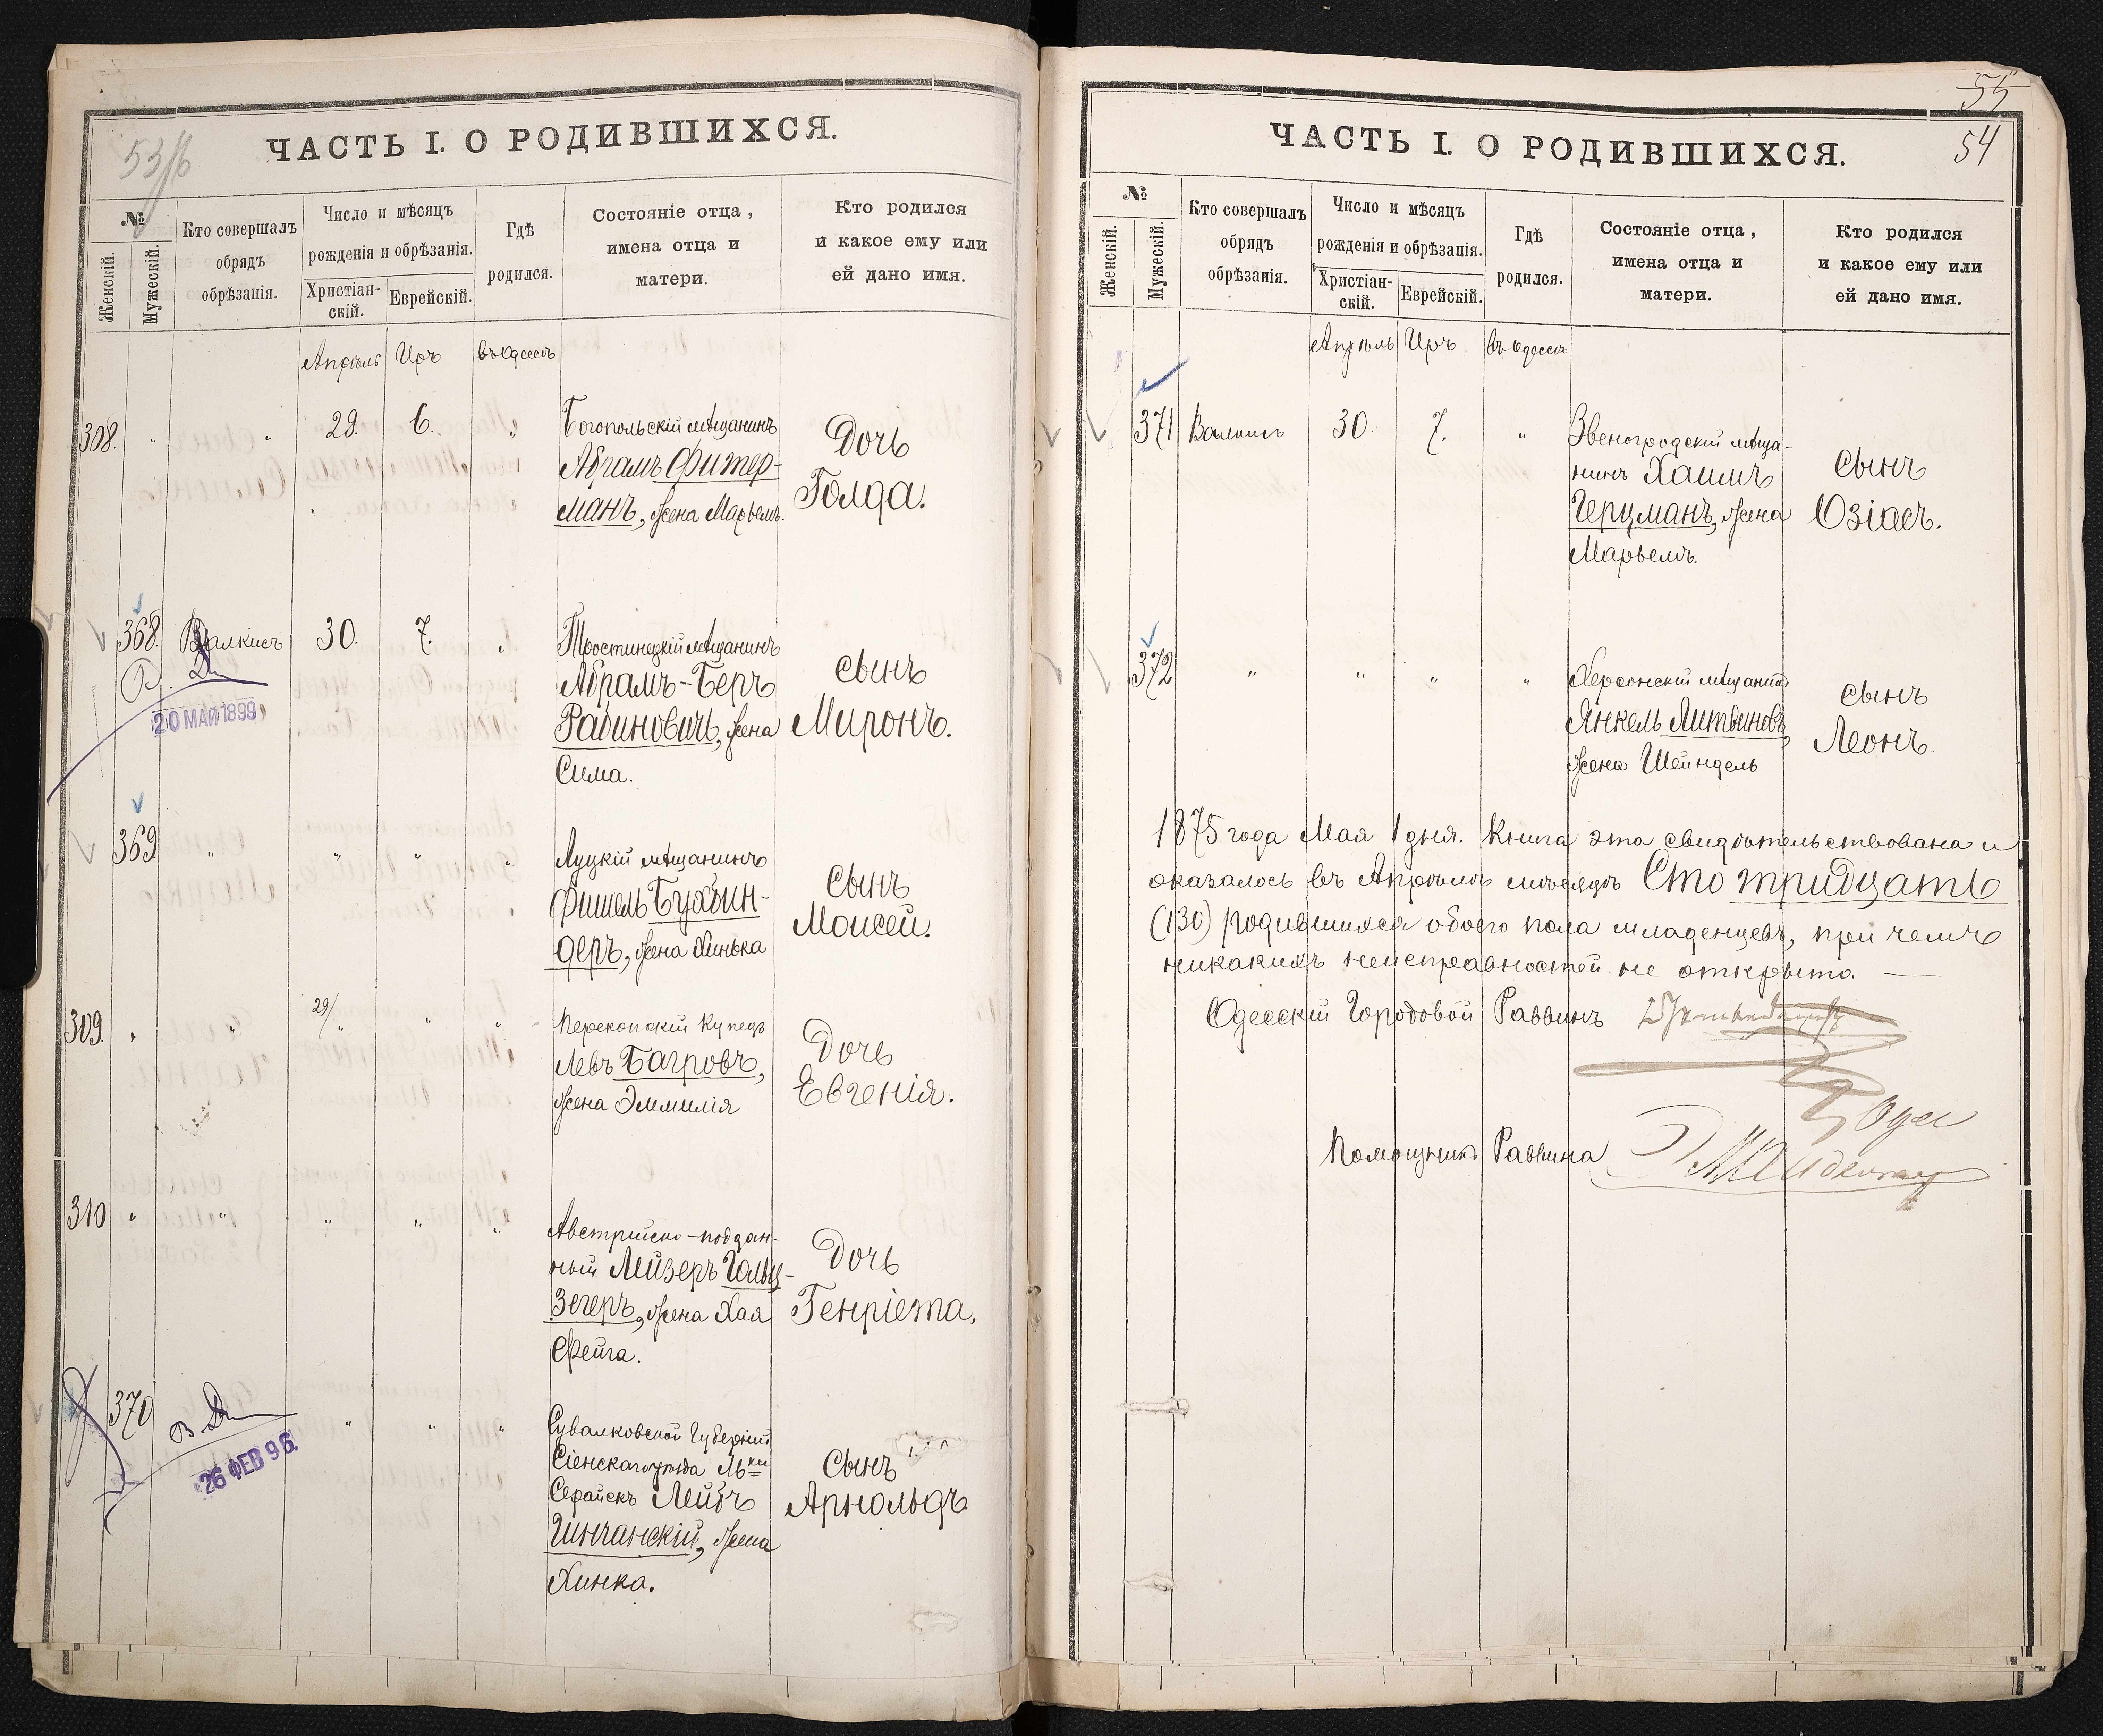 53/б
ЧАСТЬ I. О РОДИВШИХСЯ.
№
Женскій.
Мужескій.
Кто совершалъ
обрядъ
обрѣзанія.
Число и мѣсяцъ
рожденія и обрѣзанія.
Христіан-
скій.
Еврейскій.
Гдѣ
родился.
Состояніе отца,
имена отца и
матери.
Кто родился
и какое ему или
ей дано имя.
Апрѣль Иръ въ Одессѣ
308. " " 29. 6. "
Богопольскій мѣщанинъ
Абрамъ Фитер-
манъ, жена Марьемъ.
Дочь
Голда.
368. Валкисъ 30. 7. "
20 МАЙ 1899
Тростинецкій мѣщанинъ
Абрамъ-Беръ
Рабиновичъ, жена
Сима.
Сынъ
Миронъ.
369 " " " "
Луцкій мѣщанинъ
Фишель Бухбин-
деръ, жена Хинька
Сынъ
Моисей.
309. " " 29/" " "
Перекопскій Купецъ
Левъ Багровъ,
жена Эммилія
Дочь
Евгенія.
310 " " " " "
Австрійско-поддан-
ный Лейзеръ Гольц-
зегеръ, жена Хая
Фейга.
Дочь
Генріета.
370 В. " " "
26 ФЕВ 96.
Сувалковской Губерніи
уѣзда М-ки
Лейбъ
Шинчанскій, жена
Хинка.
Сынъ
Арнольдъ
55
54
ЧАСТЬ I. О РОДИВШИХСЯ.
№
Женскій.
Мужескій.
Кто совершалъ
обрядъ
обрѣзанія.
Число и мѣсяцъ
рожденія и обрѣзанія.
Христіан-
скій.
Еврейскій.
Гдѣ
родился.
Состояніе отца,
имена отца и
матери.
Кто родился
и какое ему или
ей дано имя.
Апрѣль Иръ въ Одессѣ
371 Валкисъ 30. 7. "
Звеногродскій мѣща-
нинъ Хаимъ
Герцманъ, жена
Марьемъ.
Сынъ
Озіасъ.
372 " " " "
Херсонскій мѣщанинъ
Янкель Литвиновъ,
жена Шейндель
Сынъ
Леонъ.
1875 года Мая 1 дня. Книга эта свидѣтельствована и
оказалось въ Апрѣлѣ мѣсяцѣ Сто тридцать
(130) родившихся обоего пола младенцевъ, при чемъ
никакихъ неисправностей не открыто. —
Одесскій Городовой Раввинъ
Помощникъ Раввина